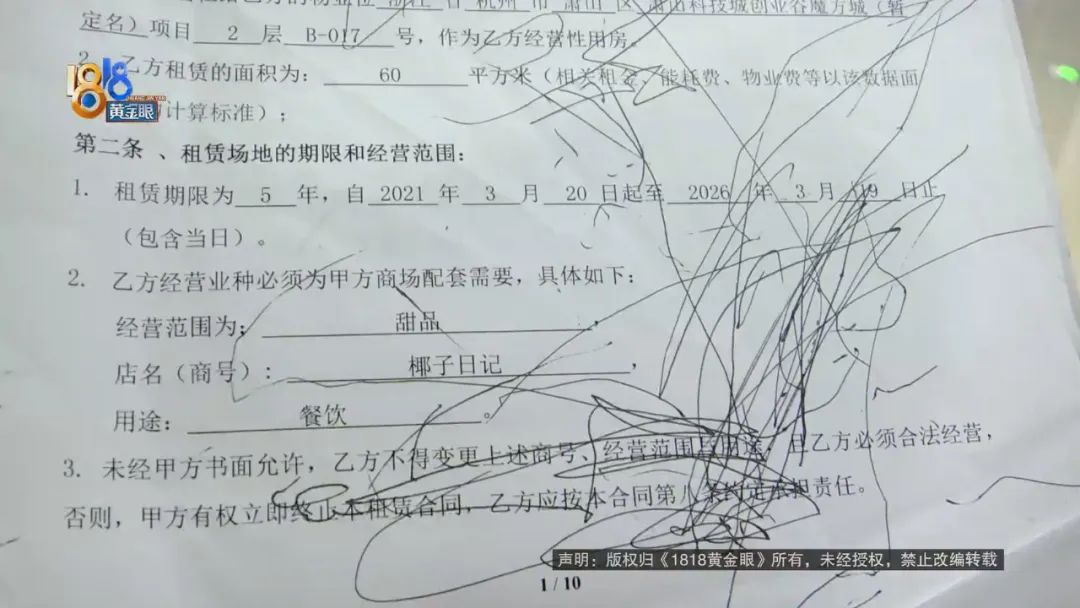 定名）项目 2 层 B-017 号，作为乙方经营性用房。
乙方租赁的面积为： 60 平方米（相关租金、能耗费、物业费等以该数据面
计算标准）；
第二条 、租赁场地的期限和经营范围：
1. 租赁期限为 5 年，自 2021 年 3 月 20 日起至 2026 年 3 月 19 日止
（包含当日）。
2. 乙方经营业种必须为甲方商场配套需要，具体如下：
经营范围为： 甜品 ，
店名（商号）： 椰子日记 ，
用途： 餐饮 。
3. 未经甲方书面允许，乙方不得变更上述商号、经营范围与用途，且乙方必须合法经营，
否则，甲方有权立即终止本租赁合同，乙方应按本合同第八条约定承担责任。
1 / 10
1818
黄金眼
声明：版权归《1818黄金眼》所有，未经授权，禁止改编转载